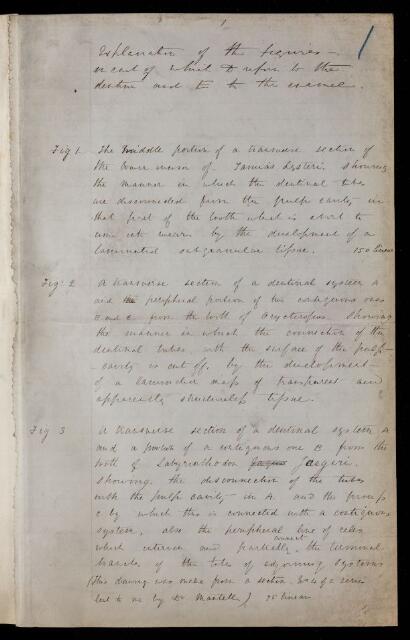 1
Explanation of the figures –
in each of which D refers to the
dentine and E to the enamel.
Fig 1. The Middle portion of a transverse section of
the lower incisor of Tamias Lysteri, showing
the manner in which the dentinal tubes
are disconnected from the pulp cavity in
that part of the tooth which is about to
come into wear by the development of a
laminated subgranular tissue. 150 linear
Fig: 2 A transverse section of a dentinal system A
and the peripheral portion of two contiguous ones
B and C from the tooth of Orycteropus. Showing
the manner in which the connection of the
dentinal tubes with the surface of the pulp-
cavity is cut off, by the development
of a laminated mass of transparent and
apparently structureless tissue.
Fig 3 A transverse section of a dentinal system A
and a portion of a contiguous one B from the
tooth of Labyrinthodon Jaegeri.
showing the disconnection of the tubes
with the pulp cavity in A and the process
C by which this is connected with a contiguous
system, also the peripheral line of cells
which intervene and partially connect the terminal
branches of the tubes of adjoining systems
(This drawing was made from a section
lent to me by Dr Mantell) 95 linear